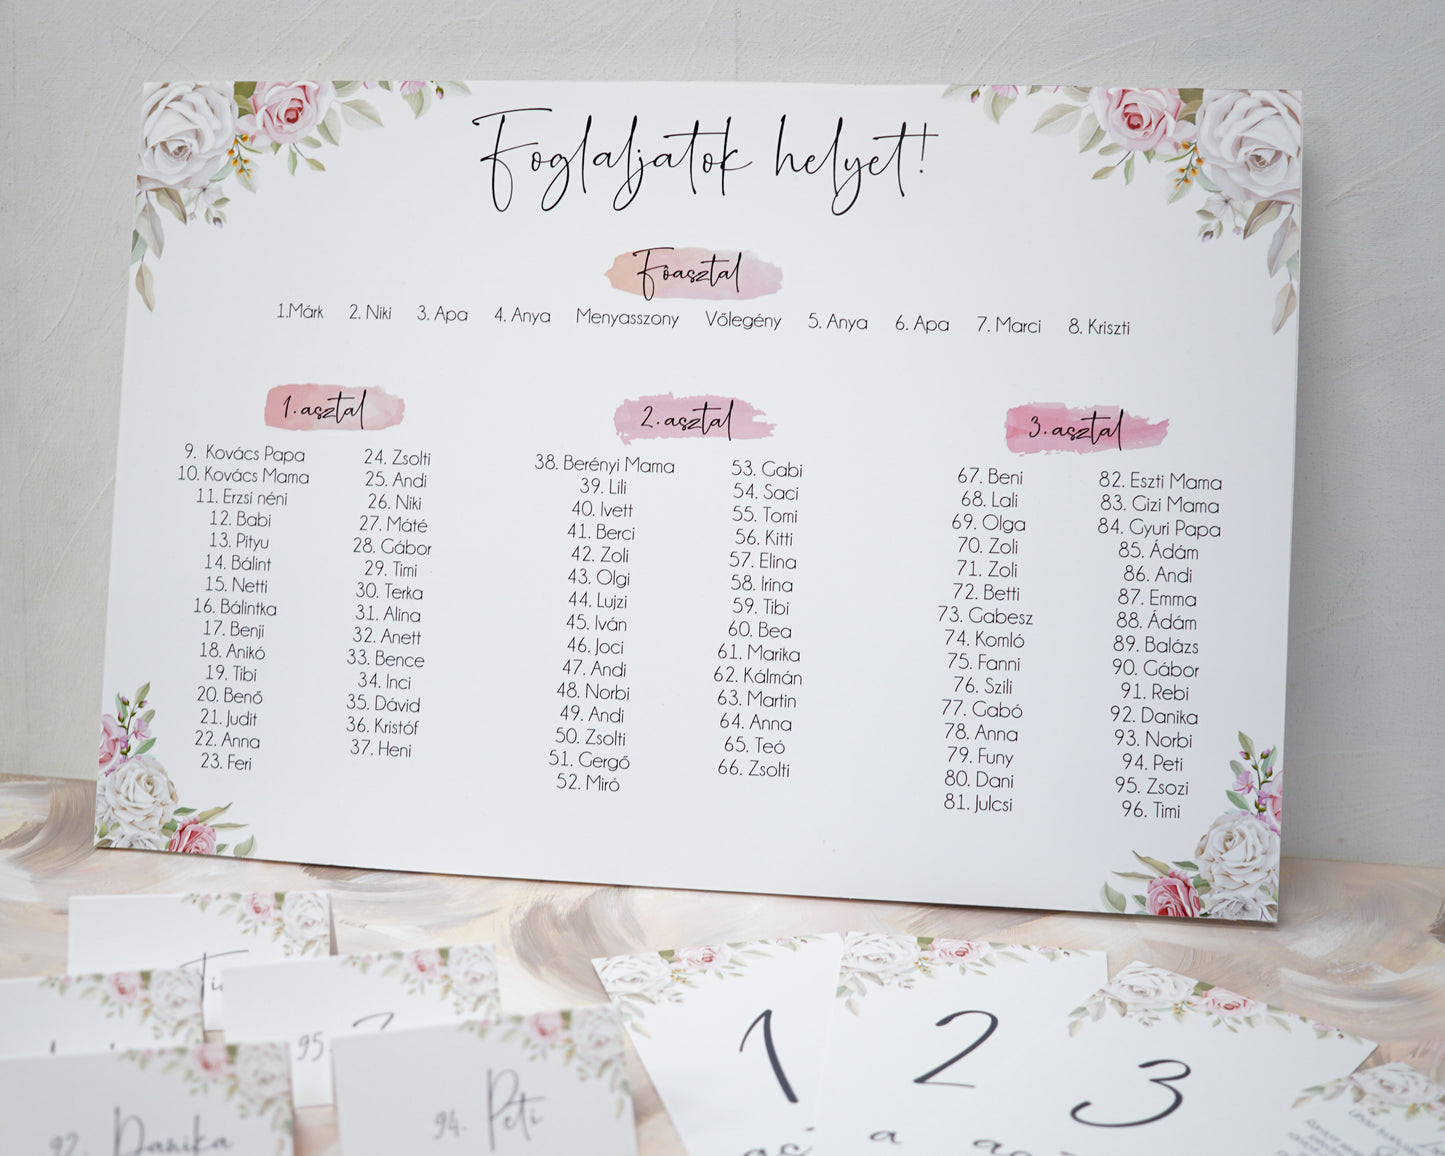 Foglaljatok helyet!
Főasztal
1.Márk 2. Niki 3. Apa 4. Anya Menyasszony Vőlegény 5. Anya 6. Apa 7. Marci 8. Kriszti
1.asztal
9. Kovács Papa
10. Kovács Mama
11. Erzsi néni
12. Babi
13. Pityu
14. Bálint
15. Netti
16. Bálintka
17. Benji
18. Anikó
19. Tibi
20. Benő
21. Judit
22. Anna
23. Feri
24. Zsolti
25. Andi
26. Niki
27. Máté
28. Gábor
29. Timi
30. Terka
31. Alina
32. Anett
33. Bence
34. Inci
35. Dávid
36. Kristóf
37. Heni
2.asztal
38. Berényi Mama
39. Lili
40. Ivett
41. Berci
42. Zoli
43. Olgi
44. Lujzi
45. Iván
46. Joci
47. Andi
48. Norbi
49. Andi
50. Zsolti
51. Gergő
52. Miró
53. Gabi
54. Saci
55. Tomi
56. Kitti
57. Elina
58. Irina
59. Tibi
60. Bea
61. Marika
62. Kálmán
63. Martin
64. Anna
65. Teó
66. Zsolti
3.asztal
67. Beni
68. Lali
69. Olga
70. Zoli
71. Zoli
72. Betti
73. Gabesz
74. Komló
75. Fanni
76. Szili
77. Gabó
78. Anna
79. Funy
80. Dani
81. Julcsi
82. Eszti Mama
83. Gizi Mama
84. Gyuri Papa
85. Ádám
86. Andi
87. Emma
88. Ádám
89. Balázs
90. Gábor
91. Rebi
92. Danika
93. Norbi
94. Peti
95. Zsozi
96. Timi
95.
92. Danika
94. Peti
1
2
3